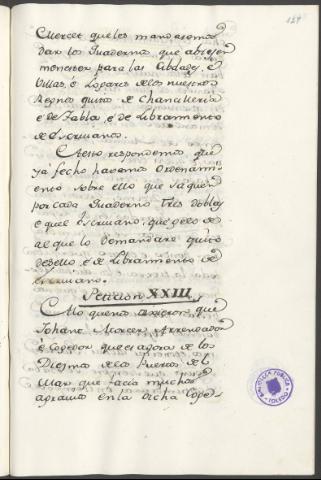 Mercet que les mandasemos
dar los Quadernos que abiesen
menester para las Cibdades, é
Villas, é Logares de los nuestros
Regnos quito de Chancilleria
é de Tabla, é de Libramiento
de Escrivanos.
A esto respondemos, que
yá fecho havemos Ordenami-
ento sobre ello que dé quen
por cada Quaderno tres doblas,
é quel Escrivano, que gelo dé
al que lo demandare quito
de Sello, é de Libramiento de
Escrivano.
Peticion XXIII
A lo que nos dixeron, que
Johane Mercer Arrendador
é Cogedor que es agora de los
Diezmos de los Puertos de la
Mar que facia muchos
agravios en la dicha Coge-
BIBLIOTECA PUBLICA
TOLEDO